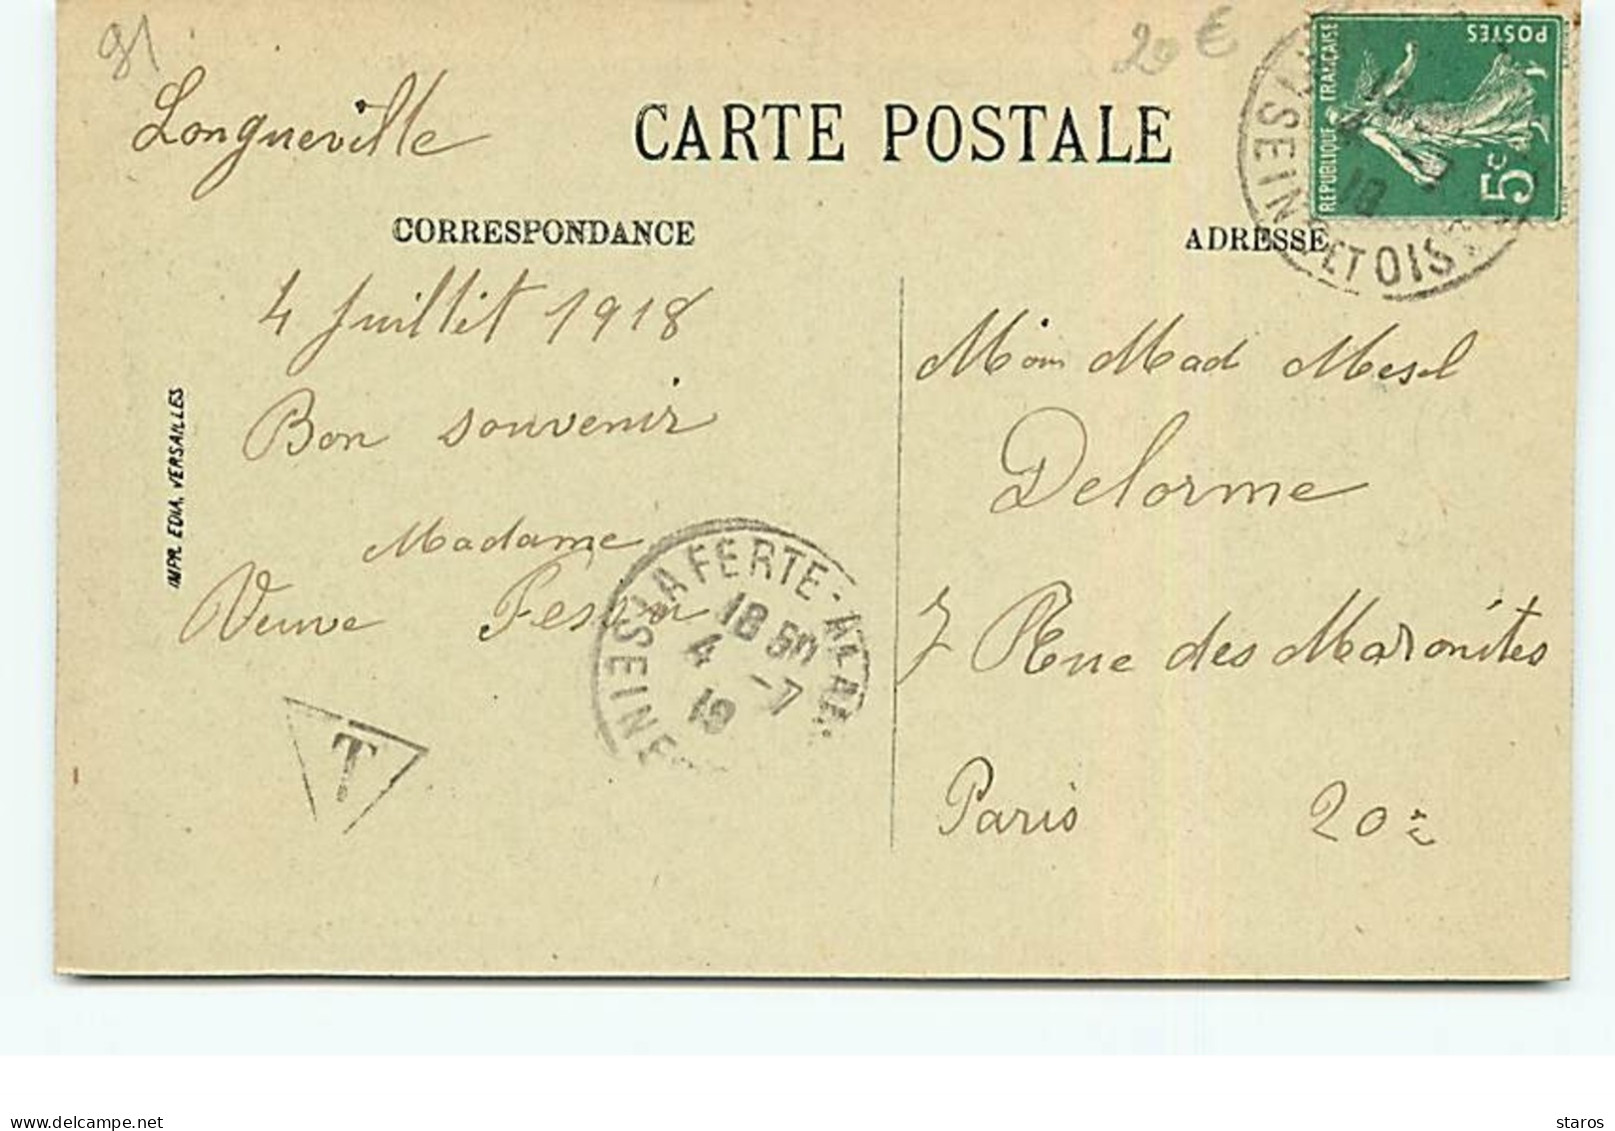 91
20 €
Longueville
CARTE POSTALE
POSTES
REPUBLIQUE FRANÇAISE
5c
SEINE ET OISE
CORRESPONDANCE
ADRESSE
4 Juillet 1918
Bon souvenir
Madame
Veuve
IMPR. EDIA, VERSAILLES
LA FERTE-ALAIS
18 50
4 -7
18
SEINE
T
Mad
Delorme
7 Rue des Maronites
Paris 20e
Delcampe.net
staros